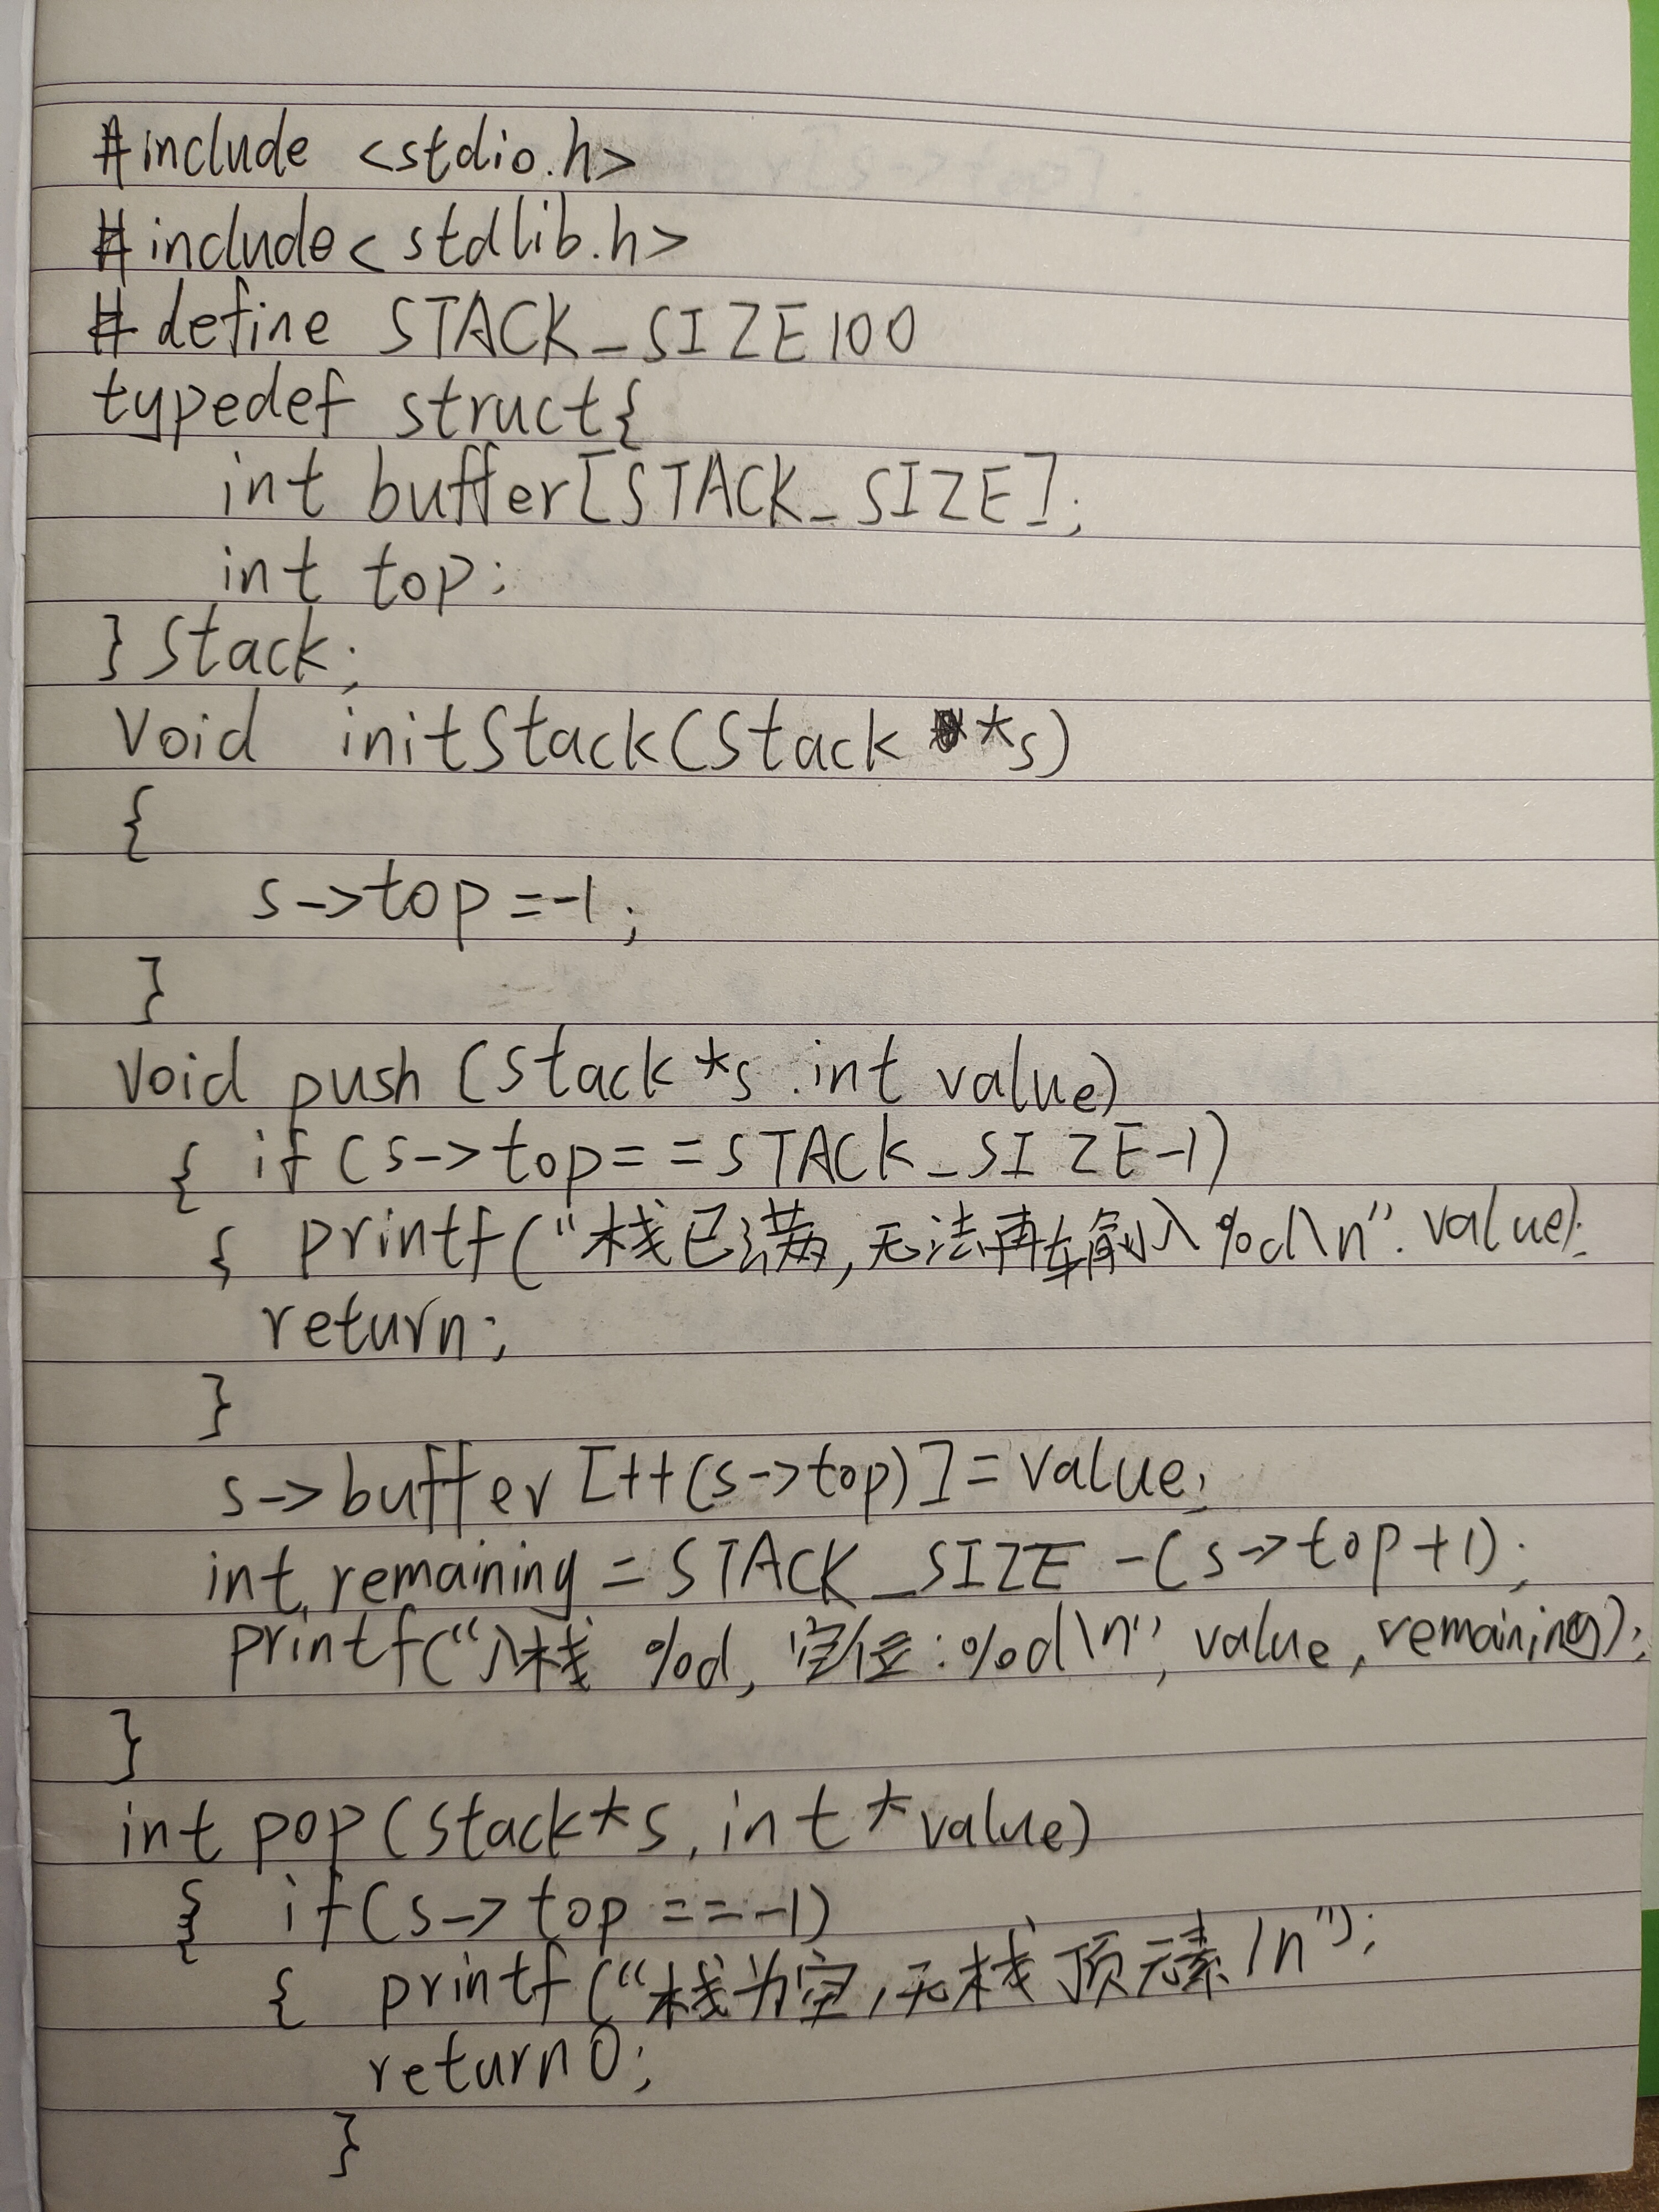 #include <stdio.h>
#include<stdlib.h>
#define STACK_SIZE 100
typedef struct{
int buffer[STACK_SIZE];
int top;
}Stack;
void initStack(Stack *s)
{
s->top=-1;
}
void push(Stack*s,int value)
{ if(s->top==STACK_SIZE-1)
{ printf("栈已满,无法再输入%d\n",value);
return;
}
s->buffer[++(s->top)]=value;
int remaining=STACK_SIZE-(s->top+1);
printf("入栈 %d,空位:%d\n",value,remaining);
}
int pop(Stack*s,int*value)
{ if(s->top==-1)
{ printf("栈为空,无栈顶元素/n");
return 0;
}